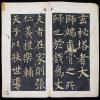 玄祕塔者大法
師端甫靈骨之所
歸也於戲為丈
夫者在家則張
仁義禮樂輔
天子以扶世導